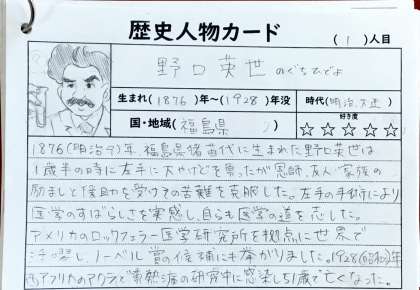 歴史人物カード
( 1 )人目
野口英世 のぐちひでよ
生まれ(1876)年〜(1928)年没
時代(明治,大正)
国・地域(福島県)
好き度
☆☆☆☆☆
1876(明治9)年、福島県猪苗代に生まれた野口英世は
1歳半の時に左手に大やけどを負ったが恩師、友人、家族の
励ましと援助を受けその苦難を克服した。左手の手術により
医学のすばらしさを実感し、自らも医学の道を志した。
アメリカのロックフェラー医学研究所を拠点に世界で
活躍し、ノーベル賞の候補にも挙がりました。1928(昭和3)年
アフリカのアクラで黄熱病の研究中に感染し51歳で亡くなった。